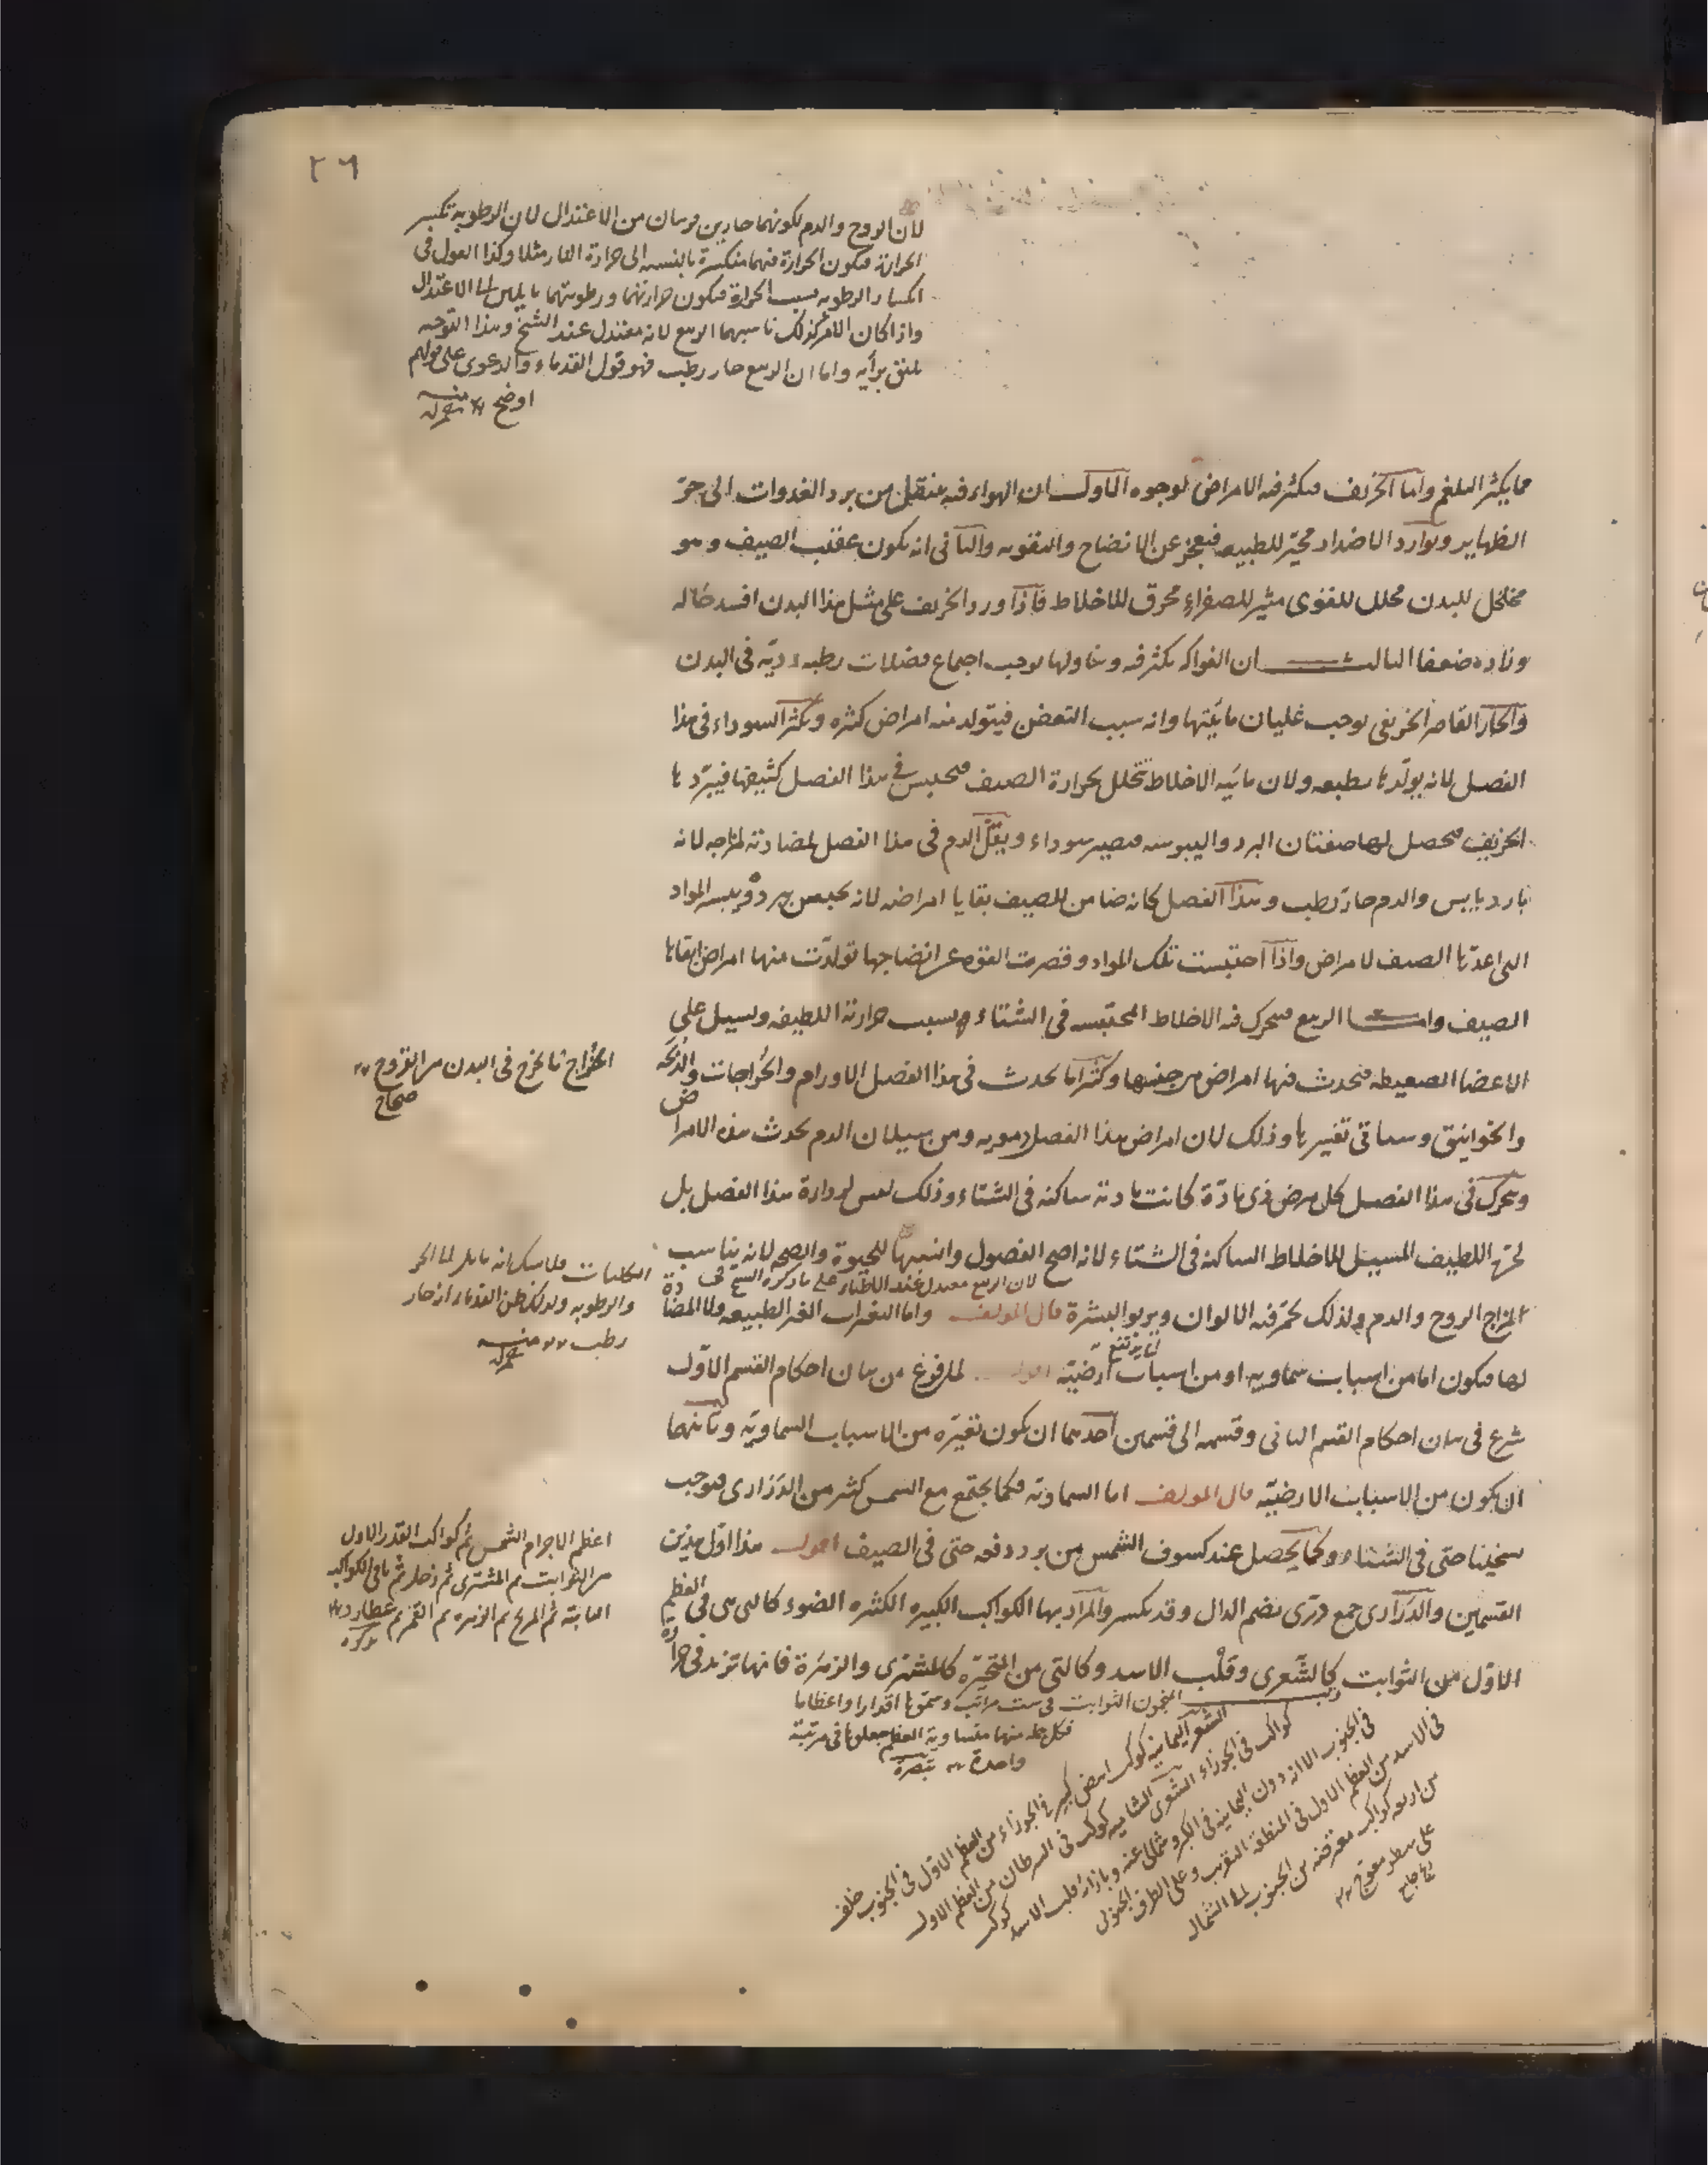 ٢٦
لان الروح والدم لكونهما حارين قرىبان من الاعتدال لان الرطوبة تكسر
الحرارة فىكون الحرارة فىهما منكسرة بالنسبه الى حرارة النار مثلا وكذا القول فى
انكسار الرطوبه بسبب الحرارة فىكون حرارتهما ورطوبتهما مايلىىن الى الاعتدال
واذا كان الامر كذلك ناسبهما الربيع لانه معتدل عند الشيخ وهذا التوجيه
برأيه واما ان الربيع حار رطب فهو قول القدماء والدعوى على قولهم
اوضح منه
مما يكثر البلغم واما الخريف فىكثر فيه الامراض لوجوه الاول ان الهواء فيه ينتقل من برد الغدوات الى حر
الظهاير وتوارد الاضداد محيّر للطبيعه فيعجز عن الانضاج والتقويه والثانى انه يكون عقيب الصيف وهو
مخلخل للبدن محلل للقوى مثير للصفراء محرق للاخلاط فاذا ورد الخريف على مثل هذا البدن افسد حاله
وزاده ضعفا الثالث ان الفواكه يكثر فيه وتناولها يوجب اجتماع فضلات رطبه رديّه فى البدن
والحار القاصر الخريفى يوجب غليان مائيتها وانه سبب التعفن فيتولد منه امراض كثيره ويكثر السوداء فى هذا
الفصل لانه يولّدها بطبعه ولان مائيه الاخلاط تتحلل بحرارة الصيف فيحتبس فى هذا الفصل كثيفها فيبرّدها
الخريف فيحصل لها صفتان البرد واليبوسه فيصير سوداء ويقلّ الدم فى هذا الفصل لمضادته لمزاجه لانه
بارد يابس والدم حار رطب وهذا الفصل كانه ضامن للصيف بقايا امراضه لانه يحبس ببرده ويبسه المواد
التى اعدّها الصيف لامراض واذا احتبست تلك المواد وقصرت القوه عن انضاجها تولدّت منها امراض ابقاها
الصيف واما الربيع فيتحرك فيه الاخلاط المحتبسه فى الشتاء بسبب حرارته اللطيفه ويسيل على
الاعضا الضعيفه فيحدث فيها امراض من جنسها وكثيرا ما يحدث فى هذا الفصل الاورام والخراجات والذبحه
والخوانيق وسياتى تفسيرها وذلك لان امراض هذا الفصل دمويه ومن سيلان الدم يحدث هذه الامراض
ويتحرك فى هذا الفصل كل مرض ذى مادّة كانت مادته ساكنه فى الشتاء وذلك ليس لرداءة هذا الفصل بل
لحره اللطيف المسيل للاخلاط الساكنه فى الشتاء لانه اصح الفصول وانسبها للحيوة والصحه لانه يناسب
لان الربيع معتدل عند الاطباء على ما ذكره الشيخ فى
المزاج الروح والدم ولذلك يحمّر فيه الالوان ويربو البشرة قال المولف واما التغيرات الغير الطبيعيه ولا المضادة
لها فىكون اما من اسباب سماويه او من اسباب ارضيّه اقول لما فرغ من بيان احكام القسم الاوّل
شرع فى بيان احكام القسم الثانى وقسمه الى قسمين احدهما ان يكون تغيّره من الاسباب السماويّه وثانيهما
ان يكون من الاسباب الارضيّه قال المولف اما السماويّه فكما يجتمع مع الشمس كثير من الدرارى فيوجب
تسخينا حتى فى الشتاء وكما يحصل عند كسوف الشمس من برد دفعه حتى فى الصيف اقول هذا اوّل هذين
القسمين والدرارى جمع درّى بضم الدال وقد يكسر والمراد بها الكواكب الكبيره الكثيره الضوء كالتى هى فى العظم
الاوّل من الثوابت كالشّعرى وقلب الاسد وكالتى من المتحيّره كالمشترى والزهرة فانها تزيد فى حرارة
الخُراج ما يخرج فى البدن من القروح
صحاح
الكليات فلا شك انه مايل الى الحر
والرطوبه ولذلك ظن القدماء انه حار
رطب منه
اعظم الاجرام الشمس ثم كواكب القدر الاول
من الثوابت ثم المشترى ثم زحل ثم باقى الكواكب
الثابتة ثم المريخ ثم الزهره ثم القمر ثم عطارد
تذكره
المنجمون الثوابت فى ست مراتب وسمّوها اقدارا واعظاما
فكل جمله منها متساوية العظم جعلوها فى مرتبة
واحدة تبصرة
الشعرى اليمانيه كوكب ابيض كبير فى الجوزاء من العظم الاول فى الجنوب خلف
كواكب فى الجوزاء الشعرى الشاميه كوكب فى السرطان من العظم الاول
فى الجنوب الا انه دون اليمانيه فى الكبر وشمالى عنه وبازائه قلب الاسد كوكب
فى الاسد من العظم الاول فى المنطقة التقريب وعلى الطرف الجنوبى
من اربعه كواكب معترضه من الجنوب الى الشمال
على سطر معوج
جامع